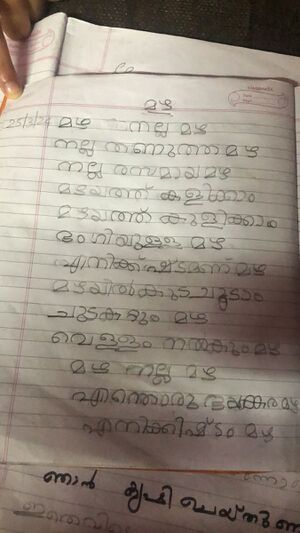 മഴ
25/3/24 മഴ നല്ല മഴ
നല്ല തണുത്ത മഴ
നല്ല രസമായ മഴ
മഴയത്ത് കളിക്കാം
മഴയത്ത് കുളിക്കാം
ഭംഗിയുള്ള മഴ
എനിക്ക് ഇഷ്ടമാണ് മഴ
മഴയിൽ കുട ചൂടാം
ചൂടകറ്റും മഴ
വെള്ളം നൽകും മഴ
മഴ നല്ല മഴ
എന്തൊരു ഭയങ്കര മഴ
എനിക്കിഷ്ടം മഴ
ഞാൻ കൃഷി ചെയ്തു